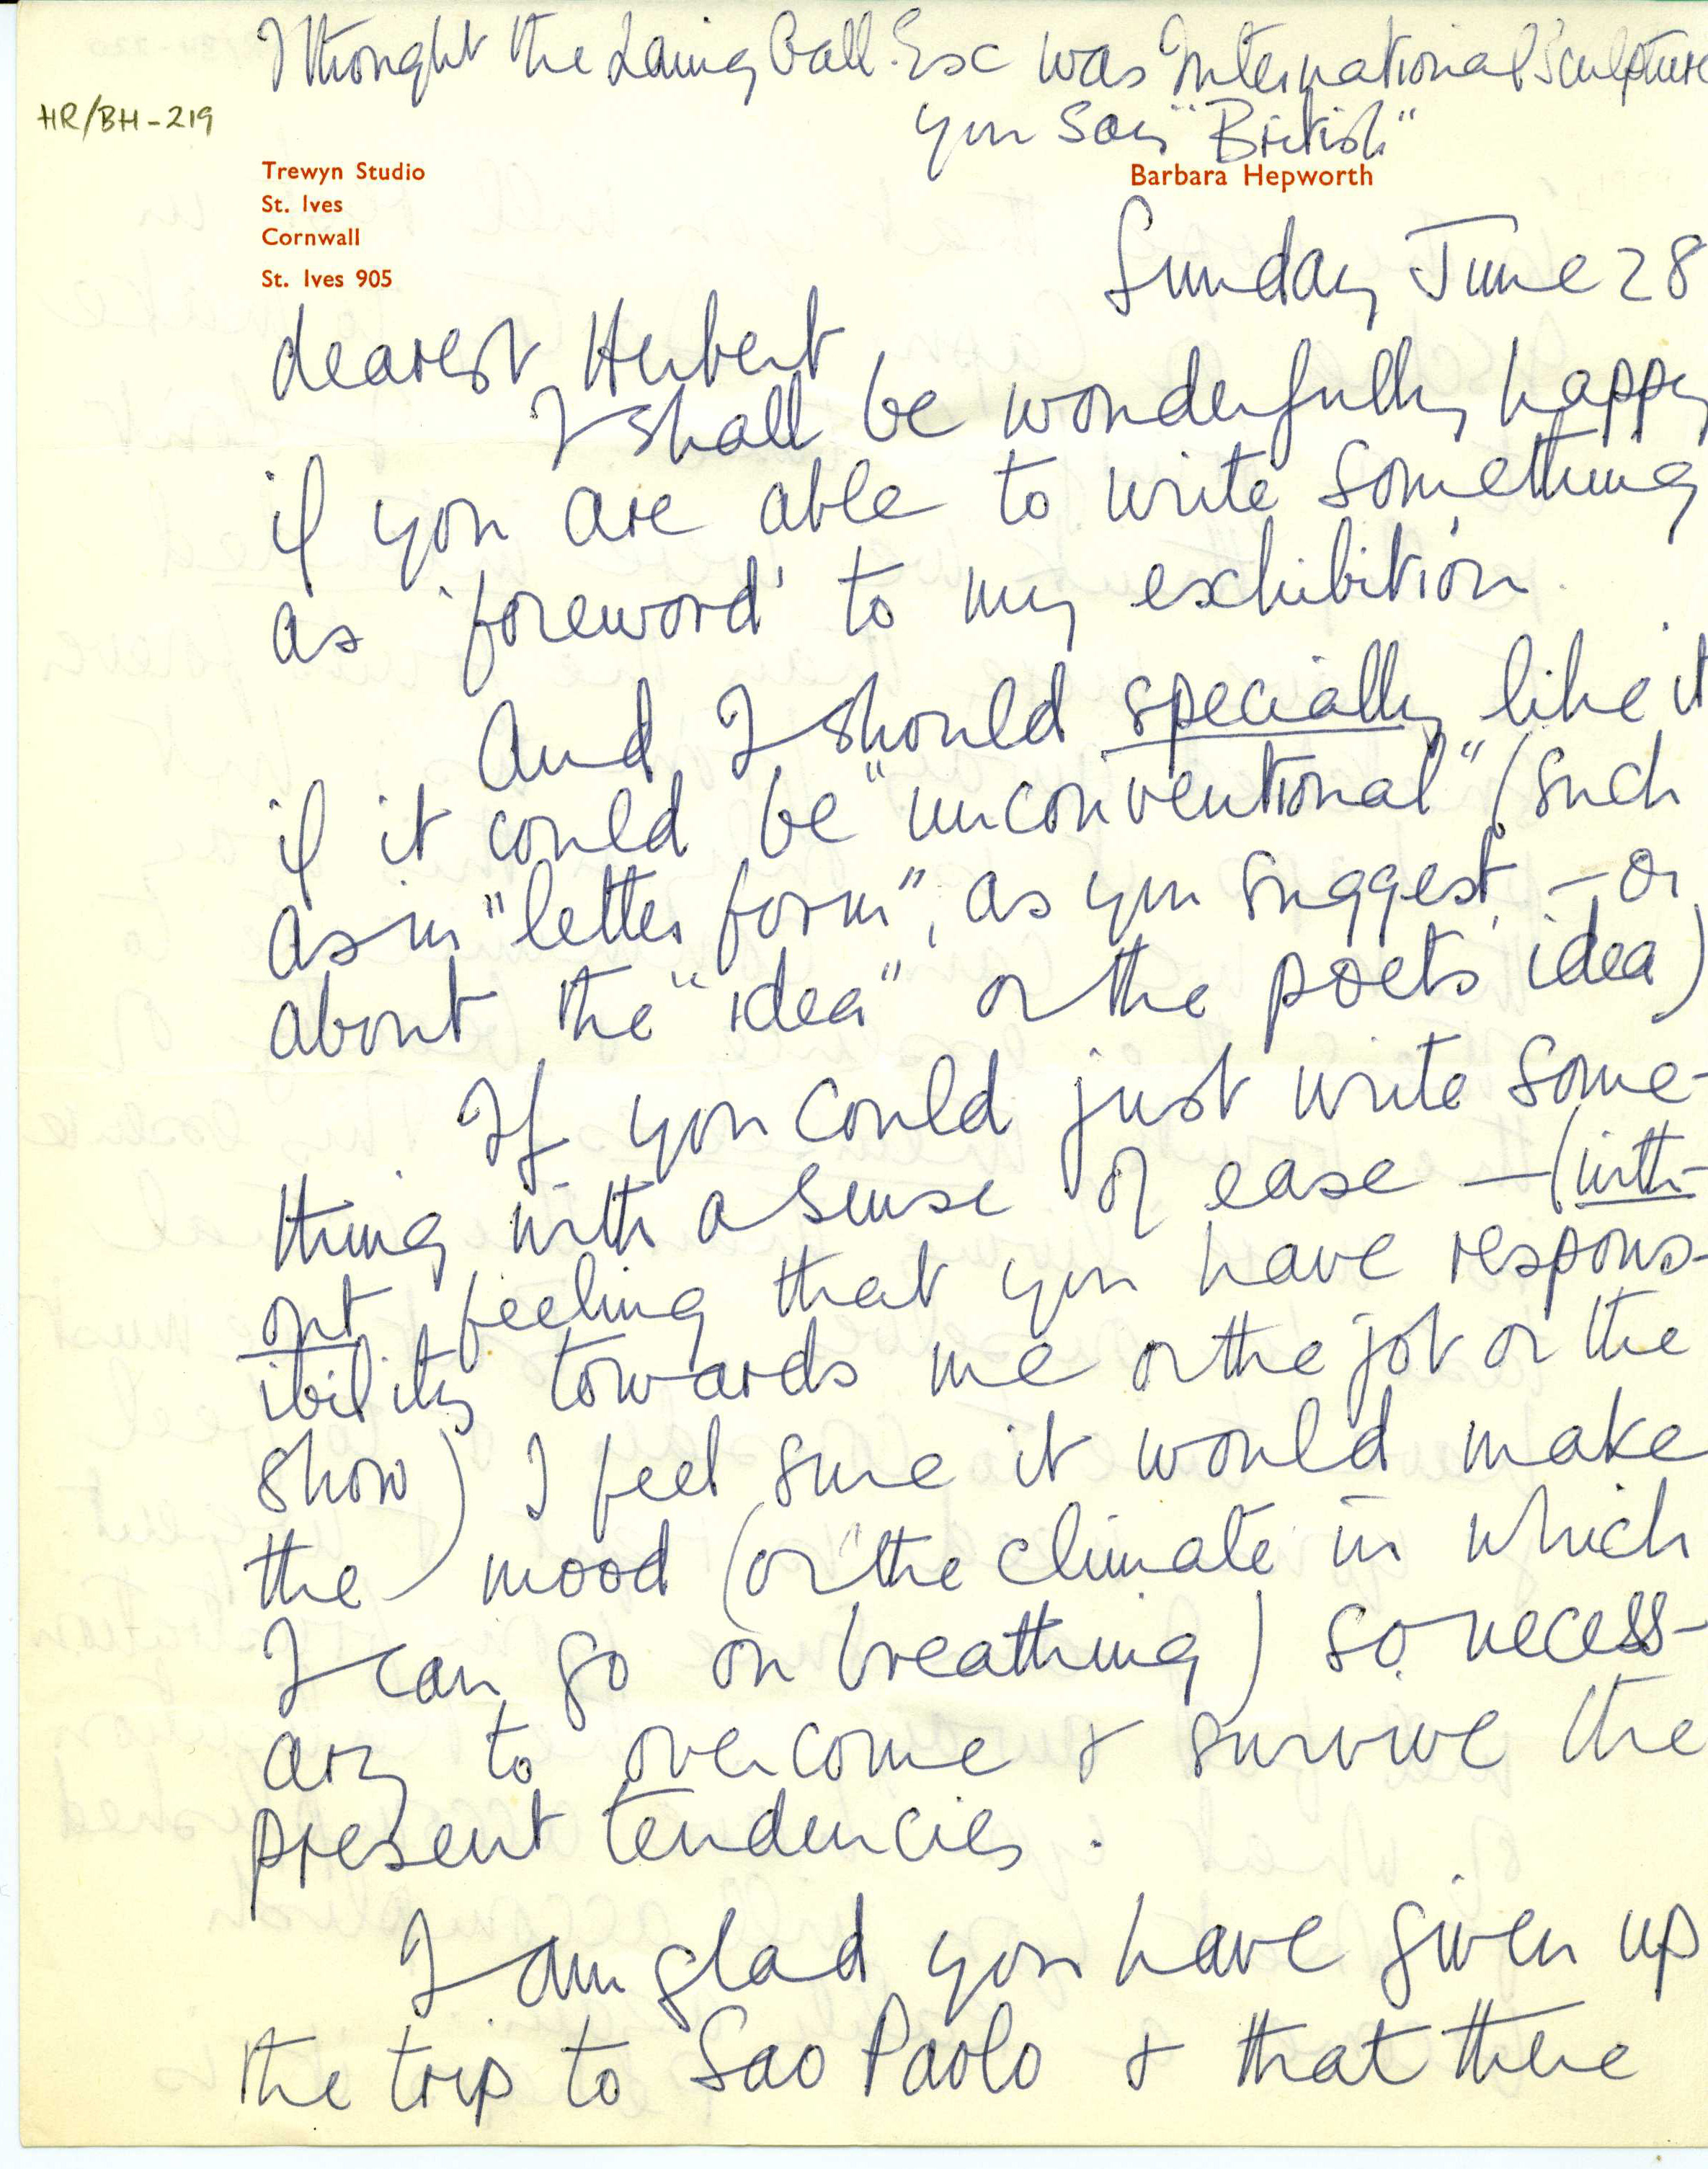 I thought the Laing Gall. Exc was International Sculpture
you say "British"
HR/BH-219
Trewyn Studio
St. Ives
Cornwall
St. Ives 905
Barbara Hepworth
Sunday June 28
dearest Herbert
I shall be wonderfully happy
if you are able to write something
as 'foreword' to my exhibition.
And I should specially like it
if it could be "unconventional" (such
as in "letter form", as you suggest, - or
about the "idea" or the poets' idea)
If you could just write some-
thing with a sense of ease - (with-
out feeling that you have respons-
ibility towards me or the job or the
show) I feel sure it would make
the mood (or the climate in which
I can go on breathing) so necess-
ary to overcome & survive the
present tendencies.
I am glad you have given up
the trip to Sao Paolo & that there